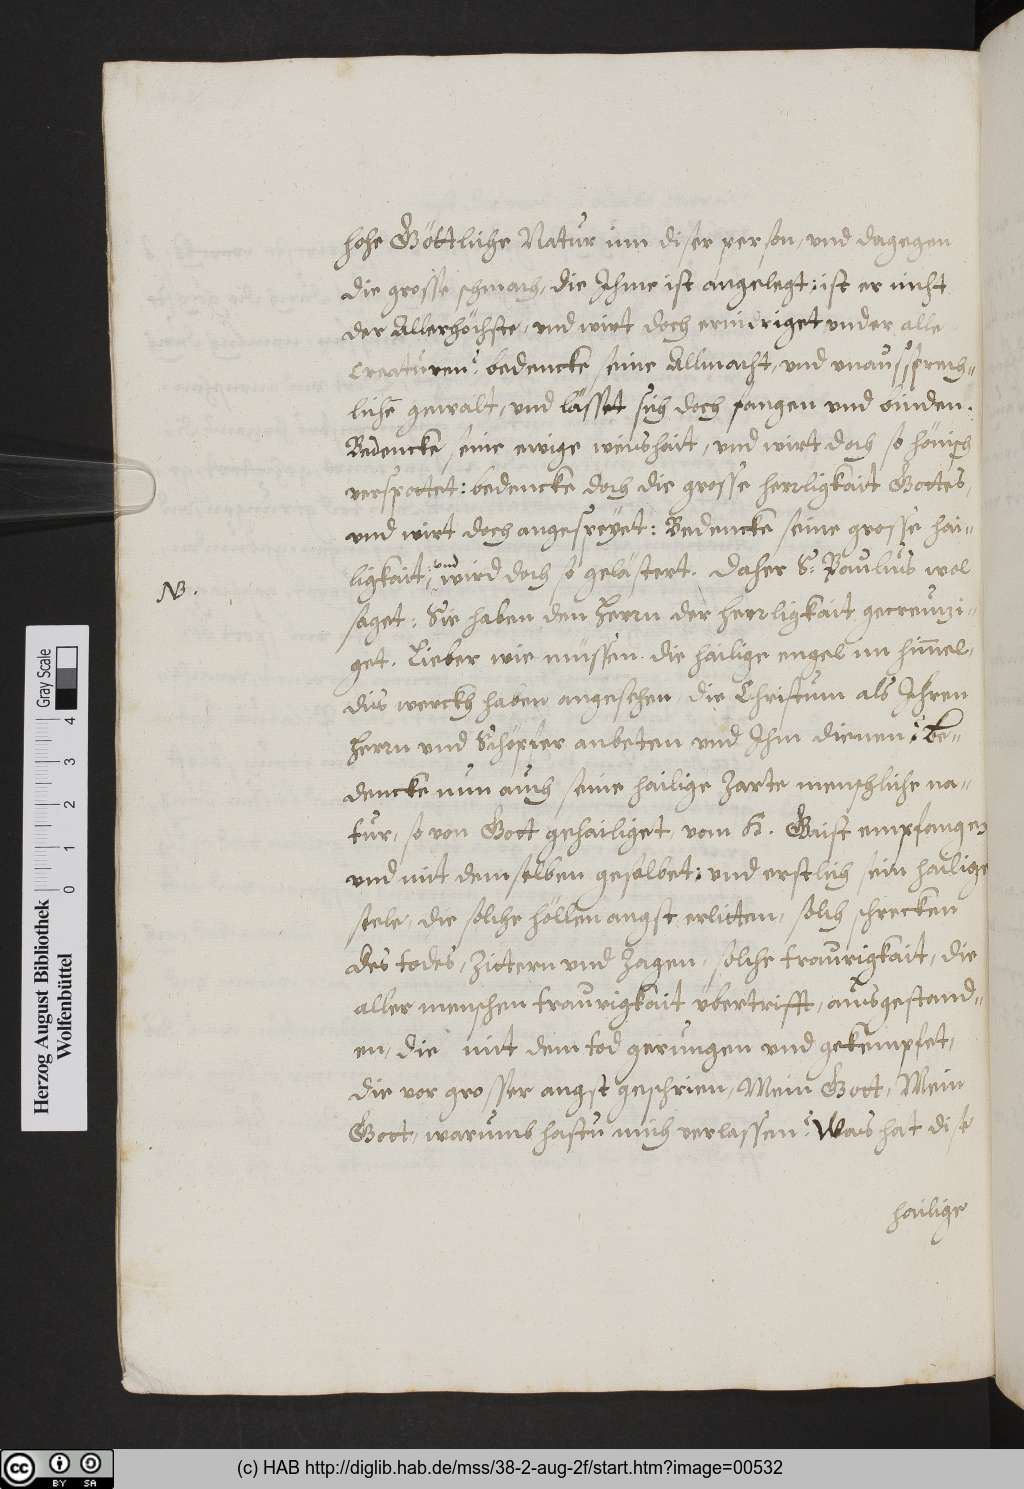 hohe Göttliche Natur inn diser person, vnd dagegen
die grosse schmach, die Ihme ist angelegt: ist er nicht
der Allerhöchste, vnd wirt doch ernidriget vnder alle
Creaturen? bedencke seine Allmacht, vnd vnaussprech-
liche gewalt, vnd lässet sich doch fangen vnd binden.
Bedencke seine ewige weisshait, vnd wirt doch so hönisch
verspottet: bedencke doch die grosse herrligkait Gottes,
vnd wirt doch angespeyet: Bedencke seine grosse hai-
ligkait, vnd wird doch so gelästert. Daher S: Paulus wol
N.
saget: Sie haben den Herrn der herrligkait gecreuzi-
get. Lieber wie müssen die hailige engel im himmel,
dis werckh haben angesehen, die Christum als Ihren
Herrn vnd Schöpfer anbeten vnd Ihm dienen? be-
dencke nun auch seine hailige Zarte menschliche na-
tur, so von Gott gehailiget, vom H. Gaist empfangen
vnd mit demselben gesalbet: vnd erstlich sein hailige
seele, die solche höllen angst erlitten, solch schrecken
des todes, Zittern vnd Zagen, solche traurigkait, die
aller menschen traurigkait übertrifft, aussgestand-
en, die mit dem tod gerungen vnd gekempfet,
die vor grosser angst geschrien, Mein Gott, Mein
Gott, warumb hastu mich verlassen? Was hat dise
hailige
Herzog August Bibliothek
Wolfenbüttel
0 1 2 3 4
Gray Scale
cc BY SA
(c) HAB http://diglib.hab.de/mss/38-2-aug-2f/start.htm?image=00532